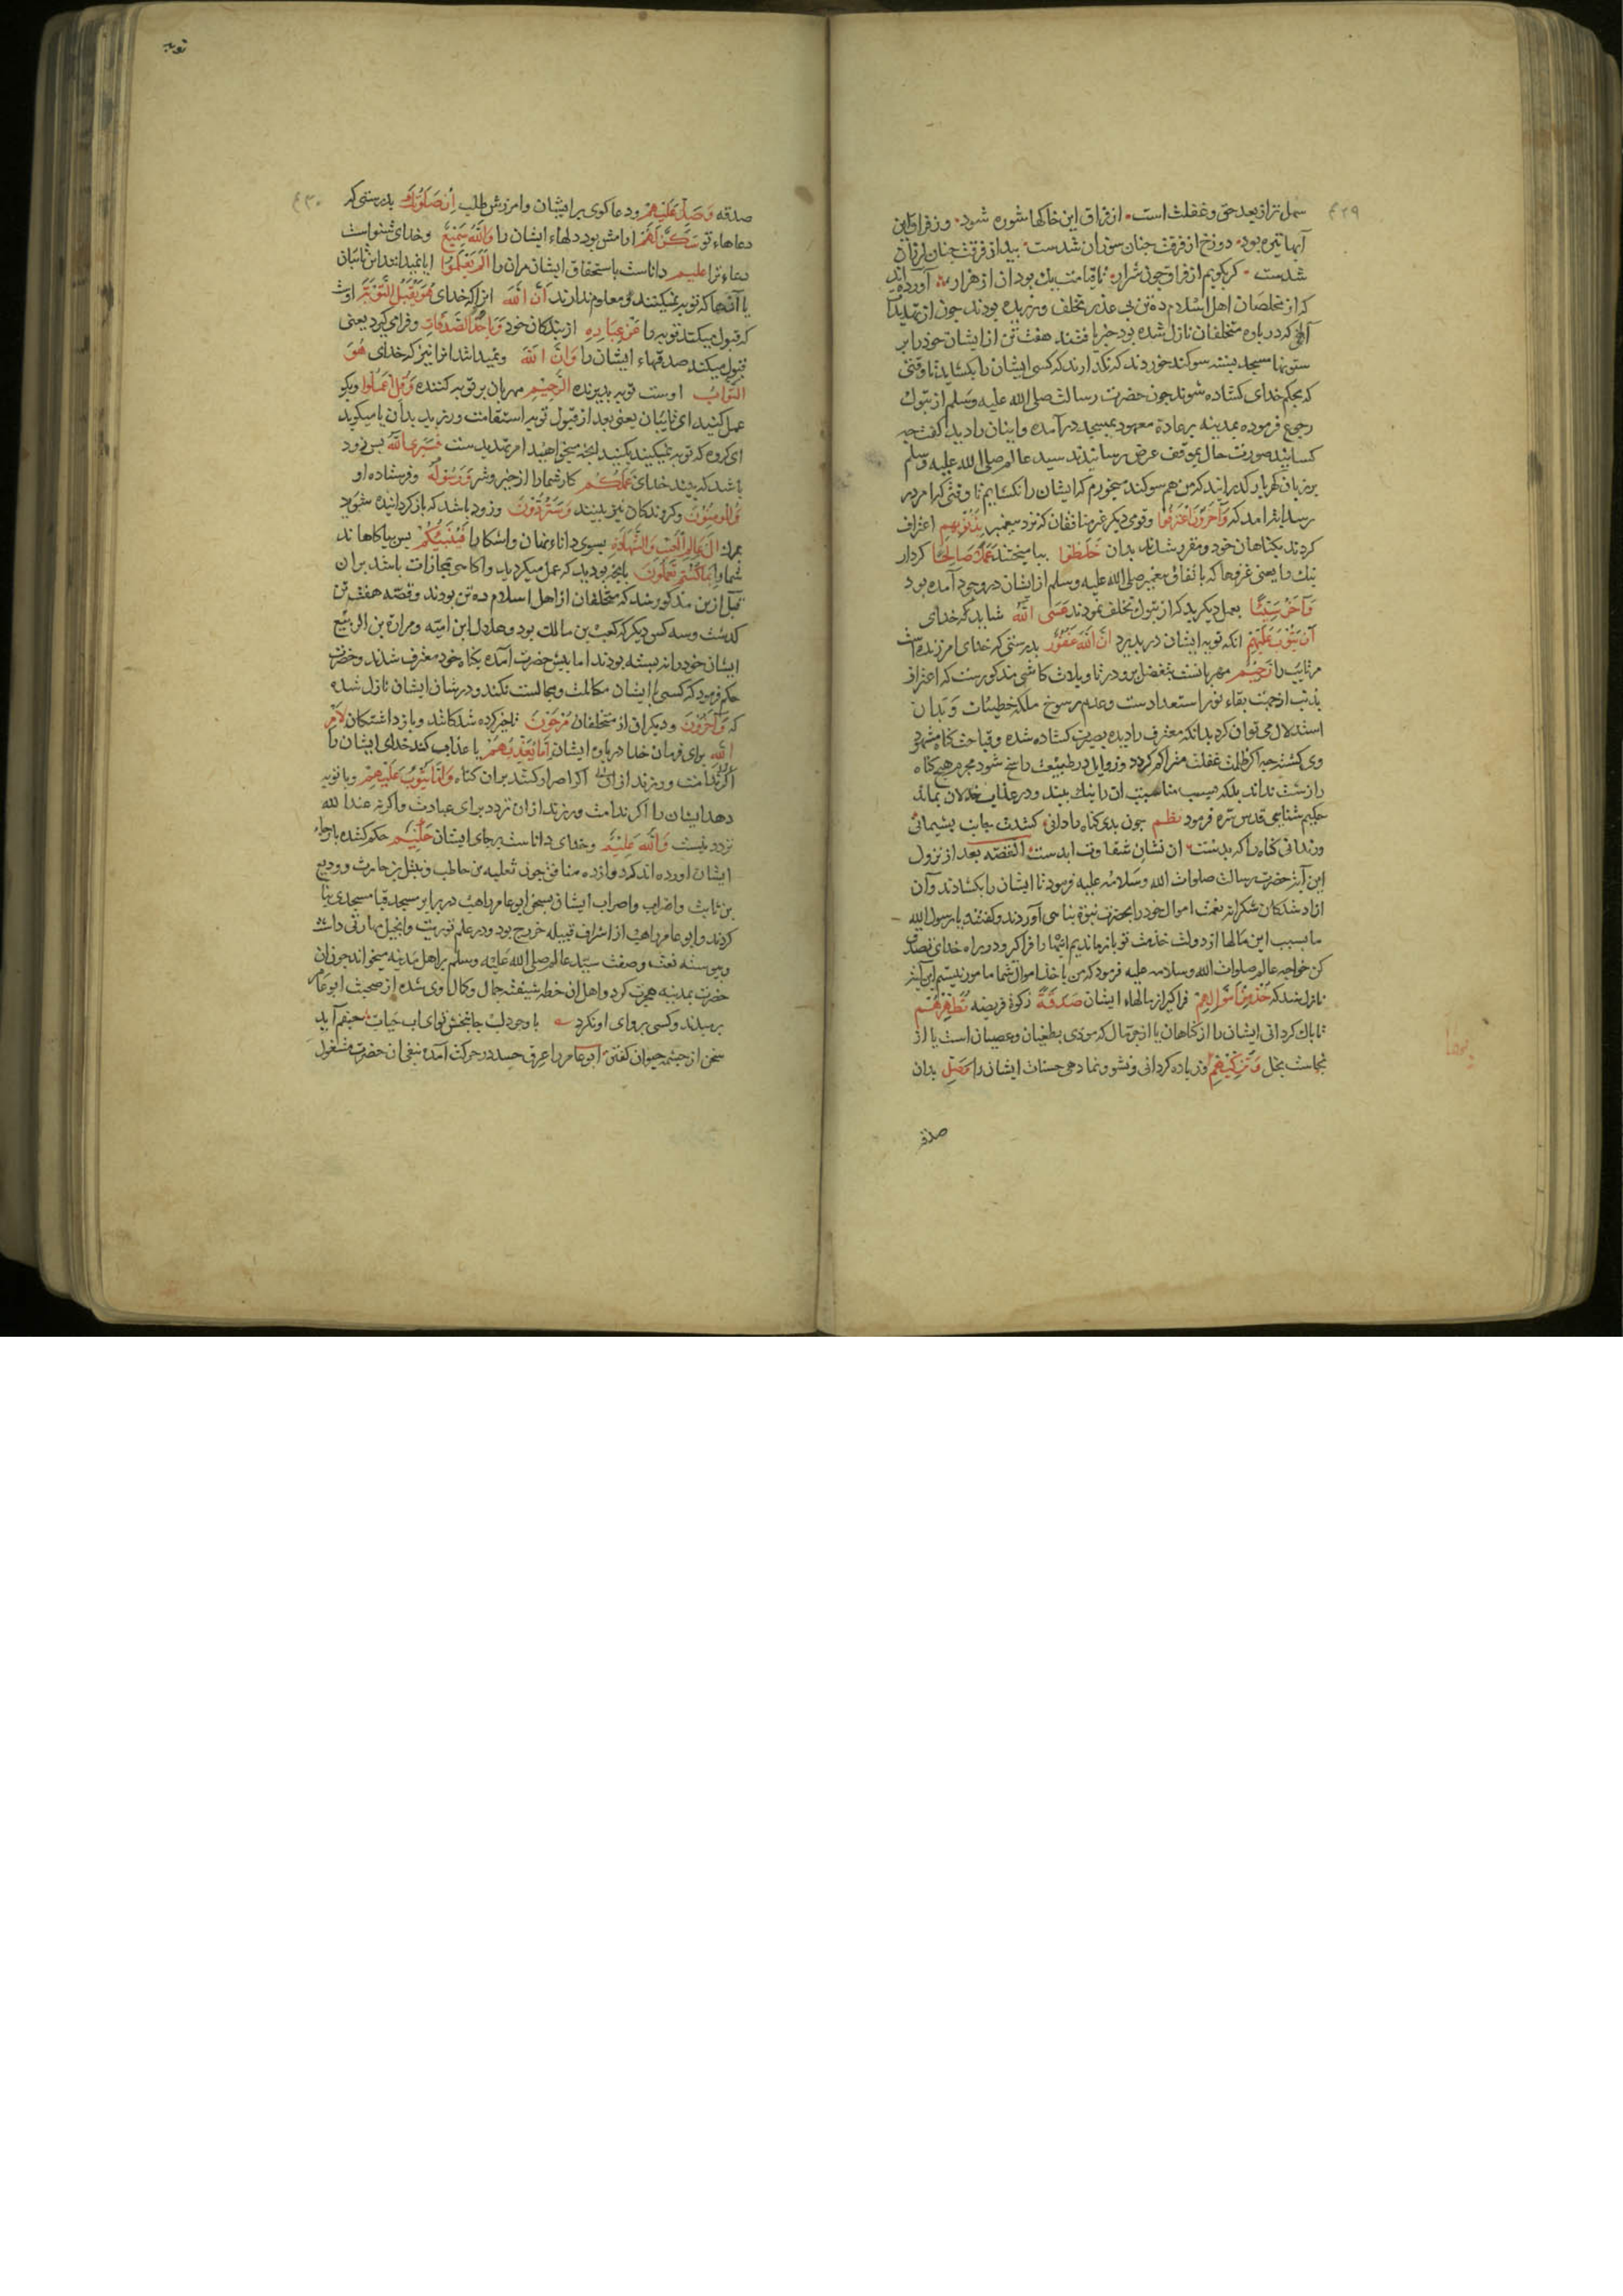 ۴۲۹
سهل تر از بعد حق و غفلت است از فراق این خاکها شوره شود وز فراق این
آبها تیره بود دوزخ از فرقت چنان سوزان شدست بید از فرقت چنان لرزان
شدست کر بکویم از فراق چون شرار تا قیامت یك بود ان از هزار آورده اند
که از مخلصان اهل اسلام ده تن بی عذر تخلف ورزیده بودند چون از تهدیدات
آلهی که در باره متخلفان نازل شده بود خبر یافتند هفت تن از ایشان خود را بر
ستونها مسجد بستند سوکند خوردند که نکذارند که کسی ایشان را بکشاید تا وقتی
که بحکم خدای کشاده شوند چون حضرت رسالت صلی الله علیه وسلم از تبوك
رجوع فرموده بمدینه بر عادة معهود بمسجد درآمده و اینان را دید کفت چه
کسانیند صورت حال بموقف عرض رسانیدند سید عالم صلی الله علیه وسلم
بر زبان کهربار کذرانید که من هم سوکند میخورم که ایشان را نکشایم تا وقتی که امر در
رسد ایه امد که وَآخَرُونَ اعْتَرَفُوا و قومی دیکر غیر منافقان که نزد پیغمبر بِذُنُوبِهِم اعتراف
کردند بکناهان خود و مقر شدند بدان خَلَطُوا بیامیختند عَمَلًا صَالِحًا کردار
نیك را یعنی غزوها که باتفاق پیغمبر صلی الله علیه وسلم از ایشان در وجود آمده بود
وَآخَرَ سَیِّئًا بعمل دیکر بد که از تبوك تخلف نمودند عَسَی اللّٰهُ شاید که خدای
اَن یَتُوبَ عَلَیْهِمْ انکه توبه ایشان در پذیرد اِنَّ اللّٰهَ غَفُورٌ بدرستی که خدای امرزنده است
مر تایب را رَحِیمٌ مهربانست بتفضل برو در تاویلات کاشی مذکورست که اعتراف
بذنب از جهت بقاء نور استعدادست و عدم رسوخ ملکه خطیئات و بدان
استدلال می توان کرد بدانکه معترف را دیده بصیرت کشاده شده و قباحت کناه مشهود
وی کشته چه اکر ظلمت غفلت متراکم کردد و رذایل در طبیعت راسخ شود مجرم هیچ کناه
را زشت نداند بلکه بسبب مناسبت ان را نیك بیند و در عذاب خذلان بماند
حکیم سنایی قدس سره فرمود نظم چون بدی کناه را دانی کشدت جانب پشیمانی
ور ندانی کناه را که بدست ان نشان شقاوت ابدست القصه بعد از نزول
این آیه حضرت رسالت صلوات الله وسلامه علیه فرمود تا ایشان را بکشادند و آن
ازاد شدکان شکرانه نعمت اموال خود را بحضرت نبوة پناهی آوردند و کفتند یا رسول الله
ما بسبب این مالها از دولت خدمت تو باز ماندیم اینها را فراکیر و در راه خدای تصدق
کن خواجه عالم صلوات الله وسلامه علیه فرمود که من باخذ اموال شما مامور نیستم این آیه
نازل شد که خُذْ مِنْ اَمْوَالِهِمْ فراکیر از مالهاء ایشان صَدَقَةً زکوة فریضه تُطَهِّرُهُمْ
تا پاك کردانی ایشان را از کناهان یا از حب مال که مودی بطغیان و عصیان است یا از
نجاست بخل وَتُزَکِّیهِمْ و زیاده کردانی و نشو و نما دهی حسنات ایشان را وَصَلِّ بدان
صدقه
۴۳۰
توبه
صدقه وَصَلِّ عَلَیْهِمْ و دعا کوی بر ایشان و امرزش طلب اِنَّ صَلٰوتَكَ بدرستی که
دعاهاء تو سَکَنٌ لَهُمْ ارامش بود دلهاء ایشان را وَاللّٰهُ سَمِیعٌ و خدای شنواست
دعاء ترا عَلِیمٌ داناست باستحقاق ایشان مر ان را اَلَمْ یَعْلَمُوا ایا نمیدانند این تائبان
یا آنها که توبه نمیکنند و معلوم ندارند اَنَّ اللّٰهَ انرا که خدای هُوَ یَقْبَلُ التَّوْبَةَ اوست
که قبول میکند توبه را عَنْ عِبَادِهِ از بندکان خود وَیَأْخُذُ الصَّدَقَاتِ و فرا می کیرد یعنی
قبول میکند صدقهاء ایشان را وَاَنَّ اللّٰهَ و نمیدانند انرا نیز که خدای هُوَ
التَّوَّابُ اوست توبه پذیرنده الرَّحِیمُ مهربان بر توبه کننده وَقُلِ اعْمَلُوا و بکو
عمل کنید ای تایبان یعنی بعد از قبول توبه استقامت ورزید بدان یا میکوید
ای کروه که توبه نمیکنید بکنید انچه میخواهید امر تهدیدست فَسَیَرَی اللّٰهُ پس زود
باشد که بیند خدای عَمَلَکُمْ کار شما را از خیر و شر وَرَسُولُهُ و فرستاده او
وَالْمُؤْمِنُونَ و کروندکان نیز بینند وَسَتُرَدُّونَ و زود باشد که باز کردانیده شوید
بمرك اِلٰی عَالِمِ الْغَیْبِ وَالشَّهَادَةِ بسوی داناء نهان و اشکارا فَیُنَبِّئُکُمْ پس بیاکاهاند
شما را بِمَا کُنْتُمْ تَعْمَلُونَ بانچه بودید که عمل میکردید و اکاهی مجازات باشد بر ان
قبل ازین مذکور شد که متخلفان از اهل اسلام ده تن بودند و قصه هفت تن
کذشت و سه کس دیکر که کعب بن مالك بود و هلال ابن امیه و مرارة بن الربیع
ایشان خود را نه بسته بودند اما پیش حضرت آمده بکناه خود معترف شدند و حضرت
حکم فرمود که کسی با ایشان مکالمت و مجالست نکند و در شان ایشان نازل شده
که وَآخَرُونَ و دیکران از متخلفان مُرْجَوْنَ تاخیر کرده شدکانند و باز داشتکان لِاَمْرِ
اللّٰهِ برای فرمان خدا در باره ایشان اِمَّا یُعَذِّبُهُمْ یا عذاب کند خدای ایشان را
اکر ندامت ورزند از ان اکر اصرار کنند بر ان کناه وَاِمَّا یَتُوبُ عَلَیْهِمْ و یا توبه
دهد ایشان را اکر ندامت ورزند از ان تردد برای عبادت و اکرنه عند الله
تردد نیست وَاللّٰهُ عَلِیمٌ و خدای داناست برجای ایشان حَکِیمٌ حکم کننده بارجاء
ایشان اورده اند که دوازده منافق چون ثعلبه بن حاطب و نبتل بن حارث و ودیع
بن ثابت و اضراب ایشان بسخن ابو عامر راهب در برابر مسجد قبا مسجدی بنا
کردند و ابو عامر راهب از اشراف قبیله خزرج بود و در علم توریت و انجیل مهارتی داشت
و پیوسته نعت و صفت سید عالم صلی الله علیه وسلم بر اهل مدینه میخواند چون ان
حضرت بمدینه هجرت کرد و اهل ان خطه شیفته جمال و کمال وی شده از صحبت ابو عامر
برمیدند و کسی پروای او نکرد با وجود لب جانبخش توای اب حیات حیفم آید
سخن از چشمه حیوان کفتن ابو عامر را عرق حسد در حرکت آمده بنفی ان حضرت مشغول